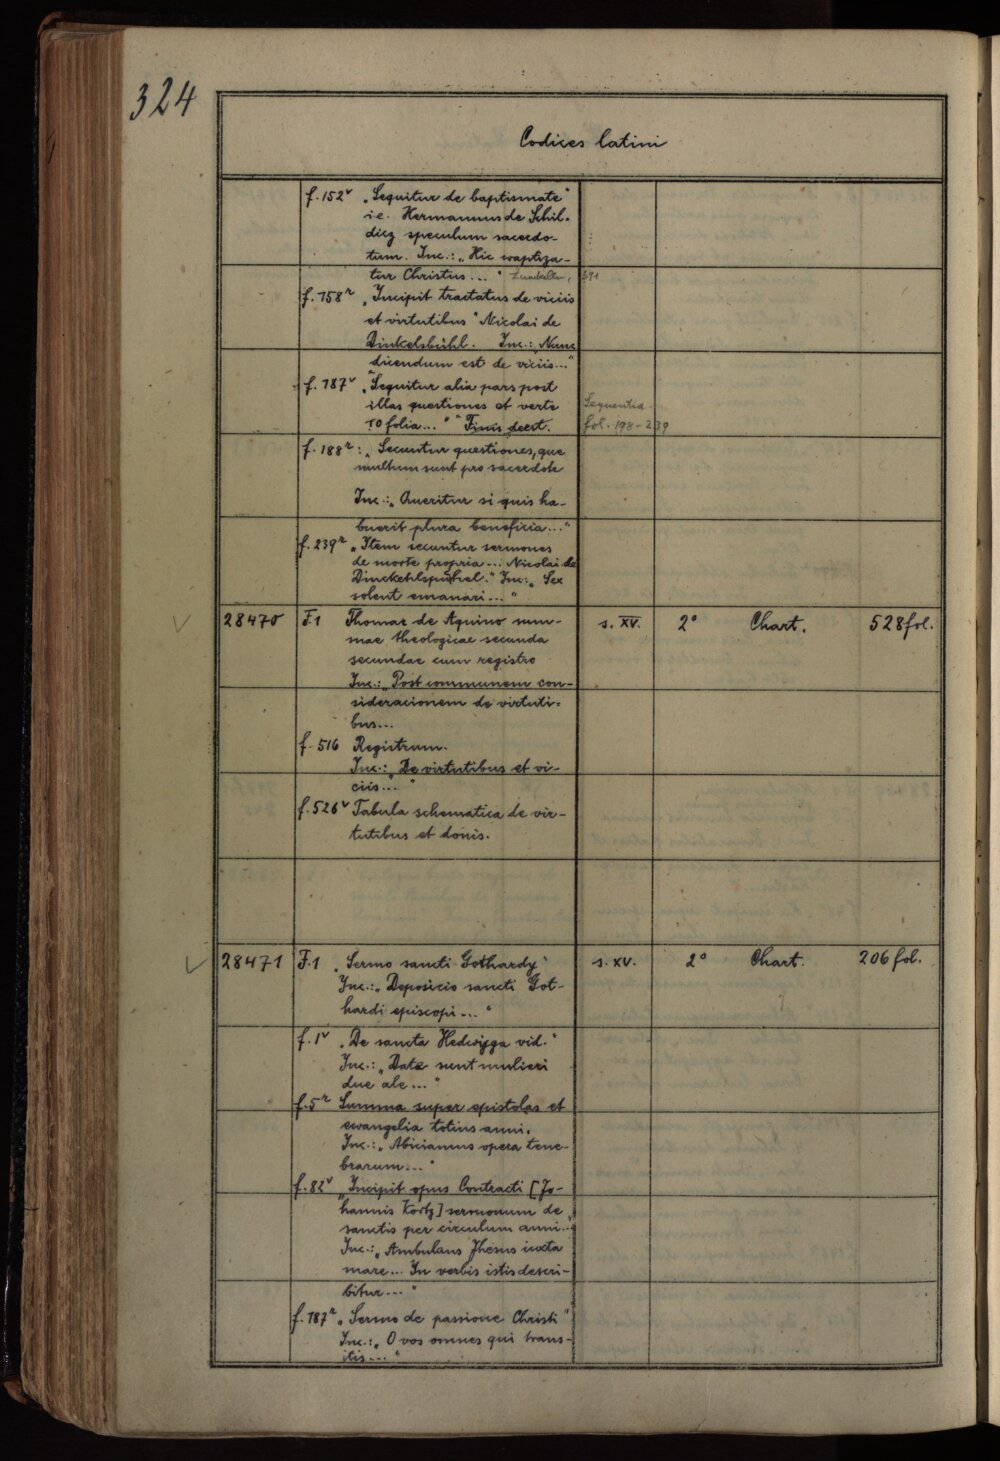 324
Codices latini
f. 152v „Sequitur de baptismate"
i. e. Hermannus de Schil-
dicz speculum sacerdo-
tum. Inc.: „Hic waptiza-
tur Christus..." 391
f. 158r „Incipit tractatus de viciis
et virtutibus" Nicolai de
Dinkelsbühl. Inc.: „Nunc
dicendum est de viciis..."
f. 187v „Sequitur alia pars post
illas questiones et verte
10 folia..." Finis deest.
Sequentia
fol. 198-239
f. 188r: „Secuntur questiones, que
multum sunt pro sacerdote
Inc.: „Queritur si quis ha-
buerit plura beneficia..."
f. 239r „Item secuntur sermones
de morte propria... Nicolai de
Dinckehlspuhel." Inc.: „Sex
solent emanari..."
28470 F. 1 Thomas de Aquino sum- s. XV. 2° Chart. 528 fol.
mae theologicae secunda
secundae cum registro
Inc.: „Post communem con-
sideracionem de virtuti-
bus...
f. 516 Registrum.
Inc.: „De virtutibus et vi-
ciis..."
f. 526v Tabula schematica de vir-
tutibus et donis.
28471 F. 1 „Sermo sancti Gothardy" s. XV. 2° Chart. 206 fol.
Inc.: „Deposicio sancti Got-
hardi episcopi..."
f. 1v „De sancta Hedwigga vid."
Inc.: „Date sunt mulieri
due ale..."
f. 5r Summa super epistolas et
ewangelia totius anni.
Inc.: „Abiciamus opera tene-
brarum..."
f. 82v „Incipit opus Contracti [Jo-
hannis Kortz] sermonum de
sanctis per circulum anni..."
Inc.: „Ambulans Jhesus iuxta
mare... In verbis istis descri-
bitur..."
f. 187r „Sermo de passione Christi"
Inc.: „O vos omnes qui trans-
itis..."